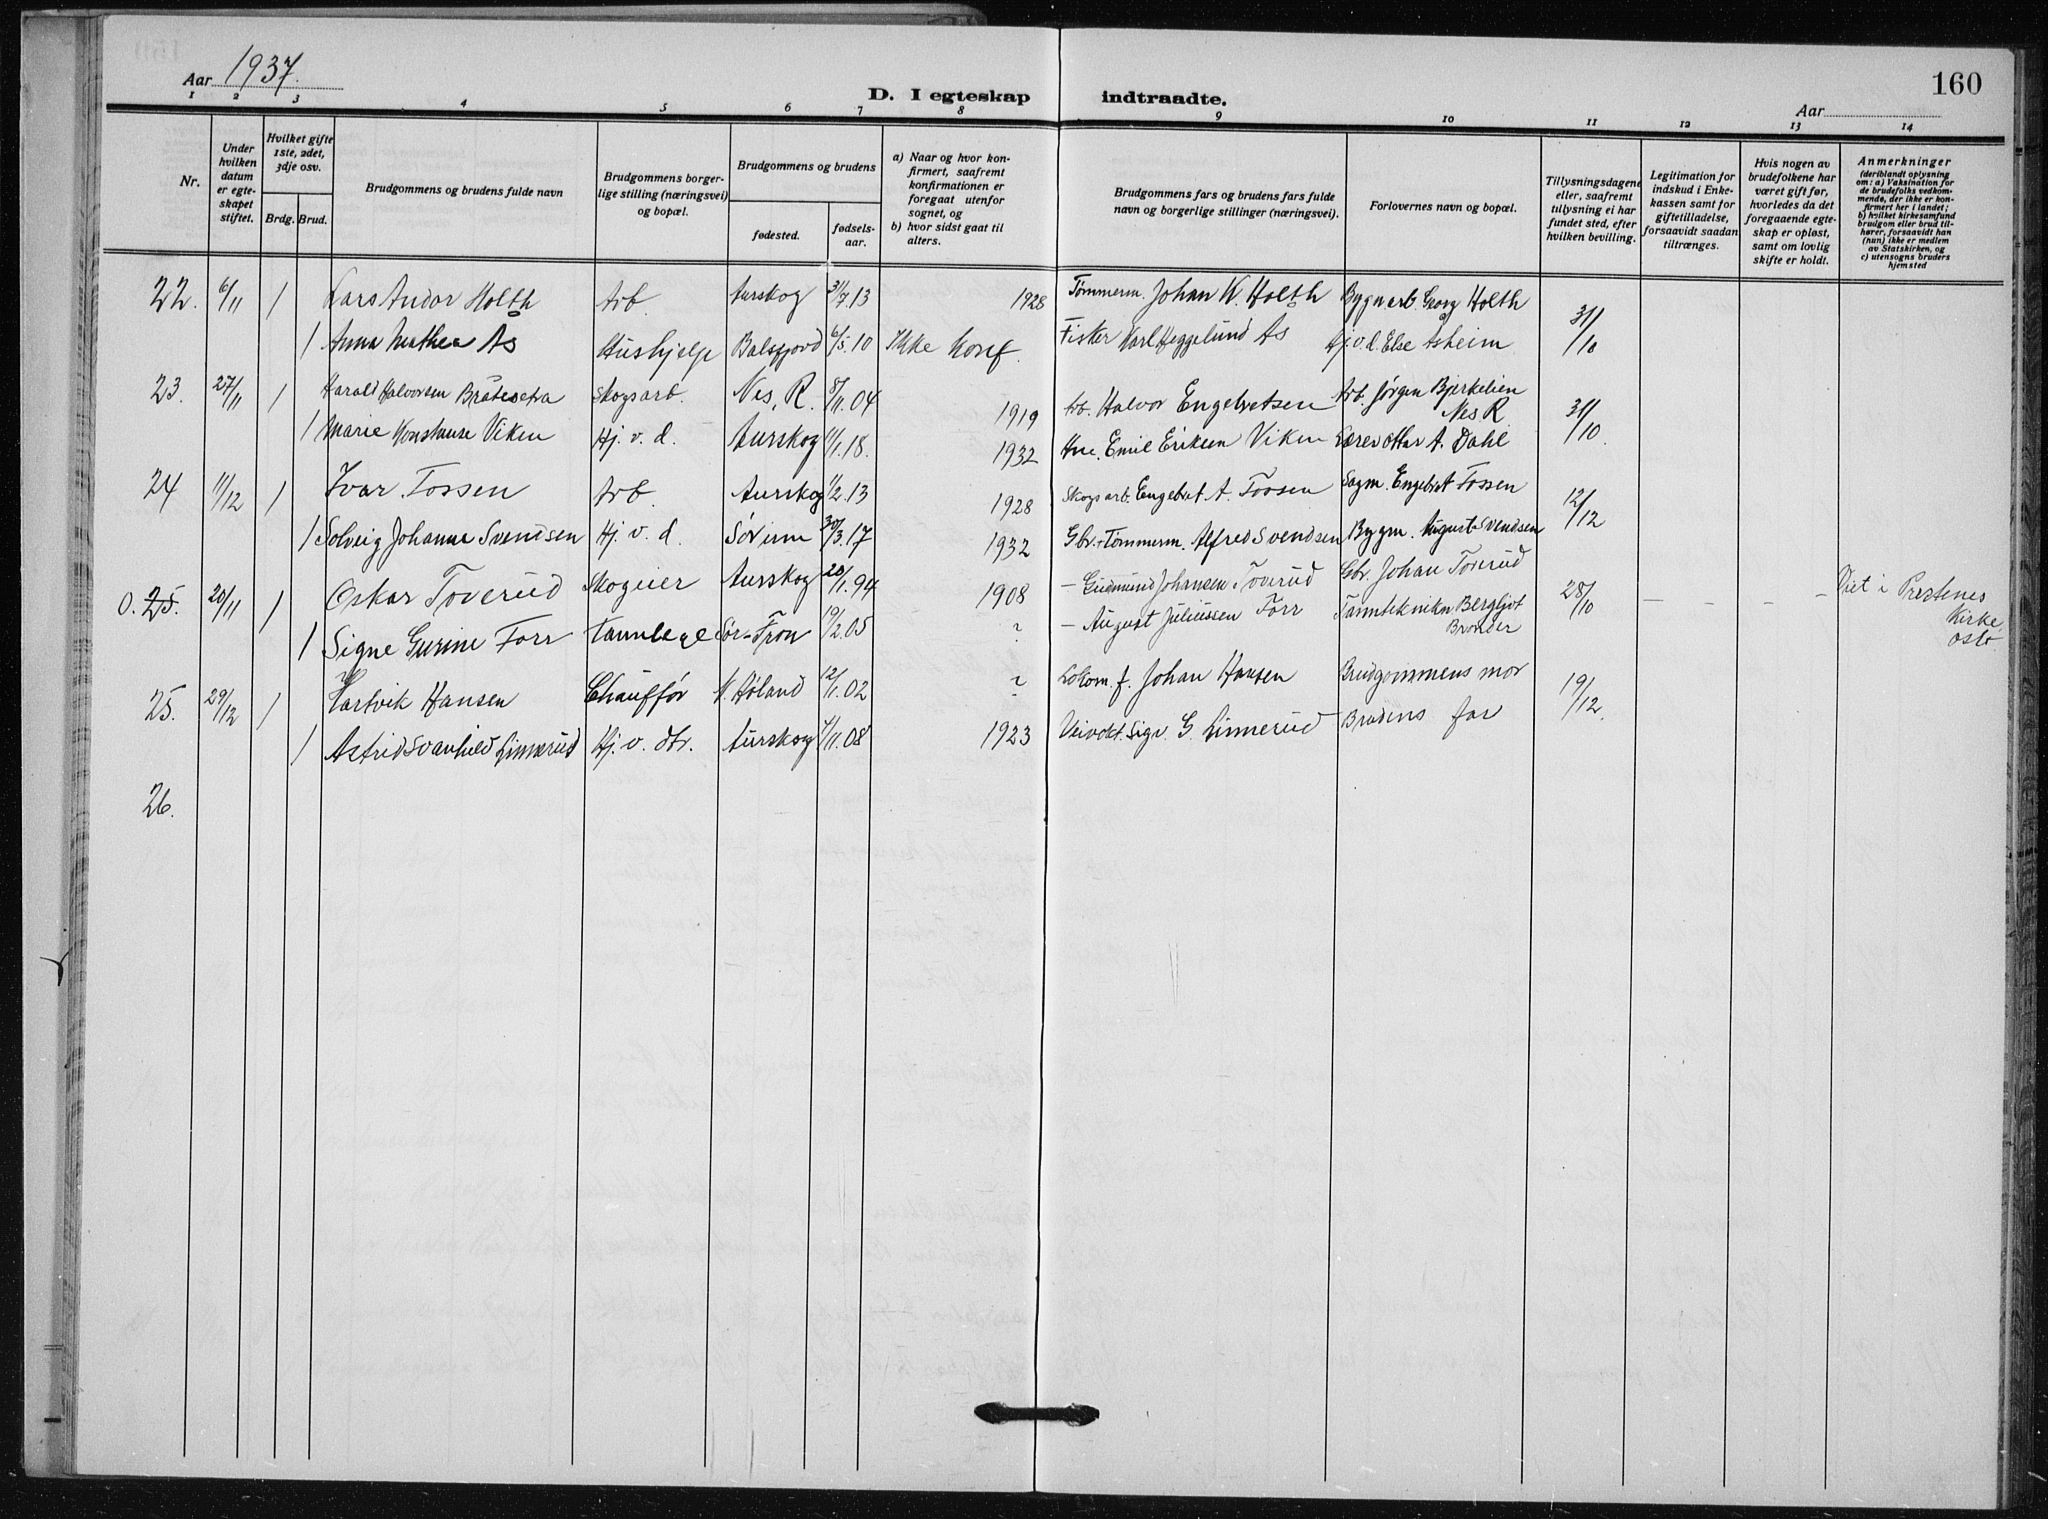 Aar 1937.
D. I egteskap indtraadte.
160
Aar
1 2 3 4 5 6 7 8 9 10 11 12 13 14
Nr.
Under hvilken datum er egteskapet stiftet.
Hvilket gifte 1ste, 2det, 3dje osv.
Brdg. Brud.
Brudgommens og brudens fulde navn
Brudgommens borgerlige stilling (næringsvei) og bopæl.
Brudgommens og brudens
fødested.
fødselsaar.
a) Naar og hvor konfirmert, saafremt konfirmationen er foregaat utenfor sognet, og
b) hvor sidst gaat til alters.
Brudgommens fars og brudens fars fulde navn og borgerlige stillinger (næringsvei).
Forlovernes navn og bopæl.
Tillysningsdagene eller, saafremt tillysning ei har fundet sted, efter hvilken bevilling.
Legitimation for indskud i Enkekassen samt for giftetilladelse, forsaavidt saadan tiltrænges.
Hvis nogen av brudefolkene har været gift før, hvorledes da det foregaaende egteskap er opløst, samt om lovlig skifte er holdt.
Anmerkninger
(deriblandt oplysning om: a) Vaksination for de brudefolks vedkommende, der ikke er konfirmert her i landet; b) hvilket kirkesamfund brudgom eller brud tilhører, forsaavidt han (hun) ikke er medlem av Statskirken, og c) utensogns bruders hjemsted
22. 6/11 1 Lars Andor Holth Arb. Aurskog 31/7.13 1928 Tømmerm. Johan K. Holth Bygn.arb. Georg Holth 31/10
1 Anna Mathea Ås Hushjelp Balsfjord 6/5.10 Ikke konf. Fisker Karl Heggelund Ås Hj.v.d. Else Åsheim
23. 27/11 1 Harald Halvorsen Bråtesetra Skogsarb. Nes, R. 8/11.04 1919 Arb. Halvor Engebretsen Arb. Jørgen Bjerkelien Nes R 31/10.
1 Marie Konstanse Viken Hj. v. d. Aurskog 11/1.18. 1932 Hne. Emil Eriksen Viken Lærer Ottar A. Dahl
24 11/12 1 Ivar Tossen Arb. Aurskog 1/2.13 1928 Skogsarb. Engebret A. Tossen Sagm. Engebret Tossen 12/12
1 Solveig Johanne Svendsen Hj. v. d. Sørum 30/3.17 1932 Gbr.+Tømmerm. Alfred Svendsen Bygm. August Svendsen
0. 25. 20/11 1 Oskar Toverud Skogeier Aurskog 20/1.94 1908 – Gudmund Johansen Toverud Gbr. Johan Toverud 28/10 – – – – Viet i Prestenes Kirke Oslo
1 Signe Gurine Forr tannlege Sør-Fron 19/2.05 ? – August Juliussen Forr Tanntekniker Bergljot
25. 29/12 1 Hartvik Hansen Chauffør N. Høland 12/1.02 ? Lokom.f. Johan Hansen Brudgommens mor 19/12.
1 Astrid Svanhild Linnerud Hj. v. dtr. Aurskog 7/11.08 1923 Veivokt. Sigv. G. Linnerud Brudens far
26.